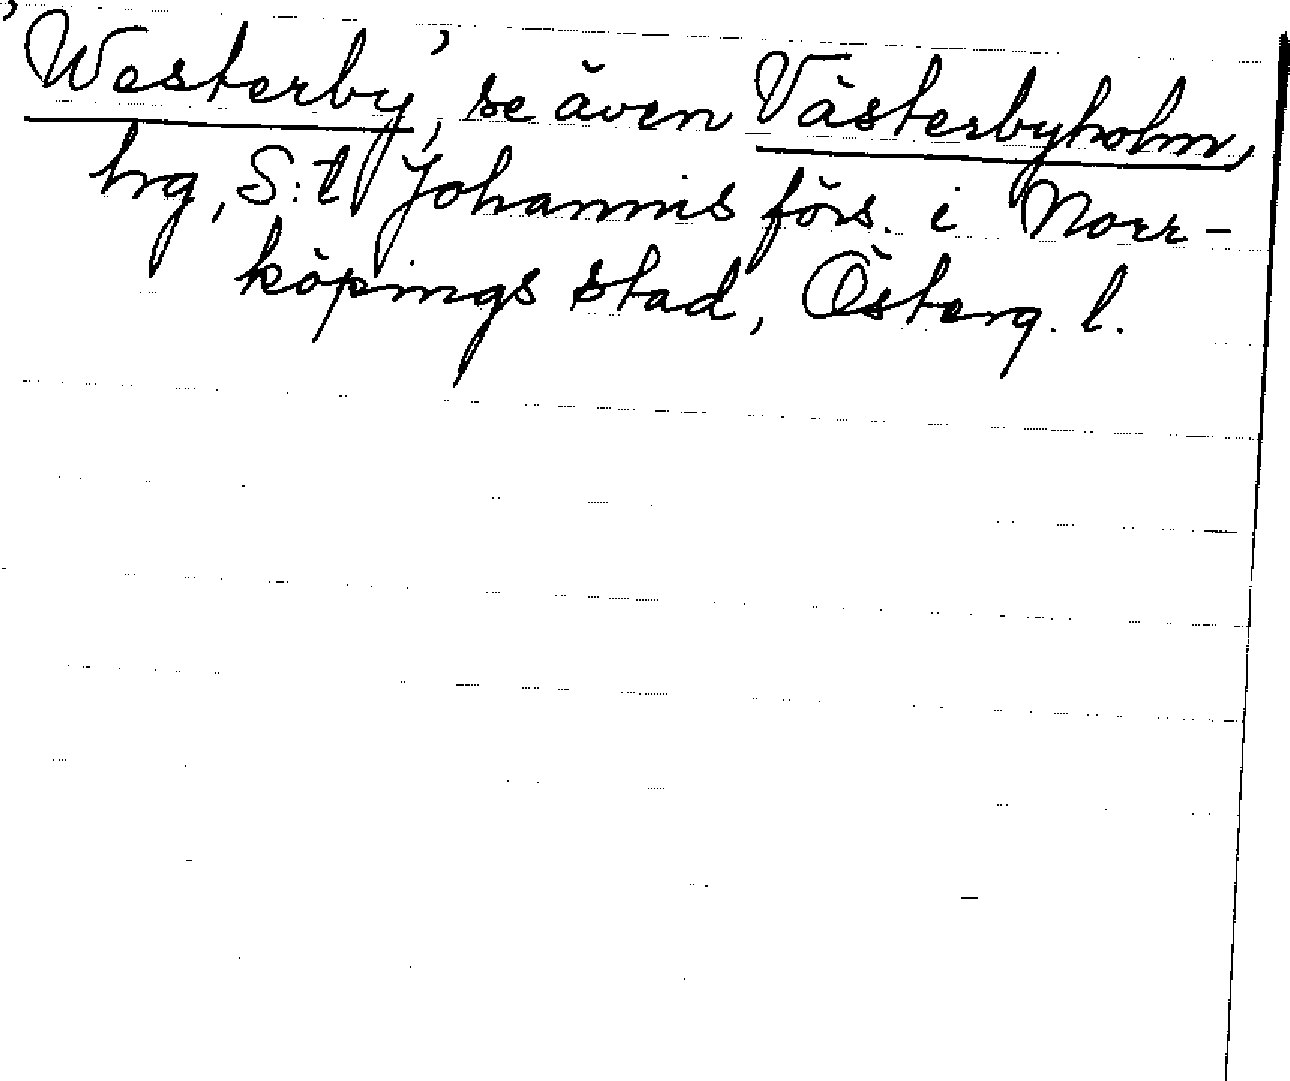 ’Westerby’, se även Västerbyholm,
hrg, S:t Johannis förs. i Norr-
köpings stad, Österg. l.